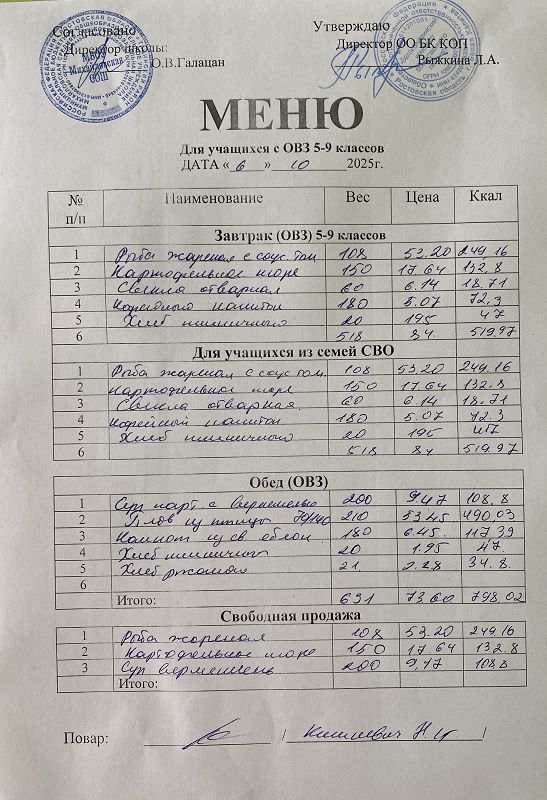 Согласовано Утверждаю
Директор школы: Директор ОО БК КОП
О.В.Галацан Рыжкина Л.А.
МЕНЮ
Для учащихся с ОВЗ 5-9 классов
ДАТА « 6 » 10 2025г.
№ п/п Наименование Вес Цена Ккал
Завтрак (ОВЗ) 5-9 классов
1 Рыба жареная с соус. том 108 53.20 249.16
2 Картофельное пюре 150 17.64 132.8
3 Свекла отварная 60 6.14 18.71
4 Кофейный напиток 180 5.07 72.3
5 Хлеб пшеничного 20 195 47
6 518 84. 519.97
Для учащихся из семей СВО
1 Рыба жареная с соус том. 108 53.20 249.16
2 Картофельное пюре 150 17.64 132.8
3 Свекла отварная. 60 6.14 18.71
4 Кофейный напиток 180 5.07 72.3
5 Хлеб пшеничного 20 195 47
6 518 84 519.97
Обед (ОВЗ)
1 Суп карт. с вермешелью 200 9.47 108.8
2 Плов из птицы 70/140 210 53.45 490.03
3 Компот из св яблок. 180 6.45. 117.39
4 Хлеб пшеничного 20 1.95 47
5 Хлеб ржаной 21 2.28 34.8.
6
Итого: 631 73.60 798.02
Свободная продажа
1 Рыба жареная 108 53.20 249.16
2 Картофельное пюре 150 17.64 132.8
3 Суп вермешель 200 9,47 108.8
Итого:
Повар: / Кишиевич Н.И /